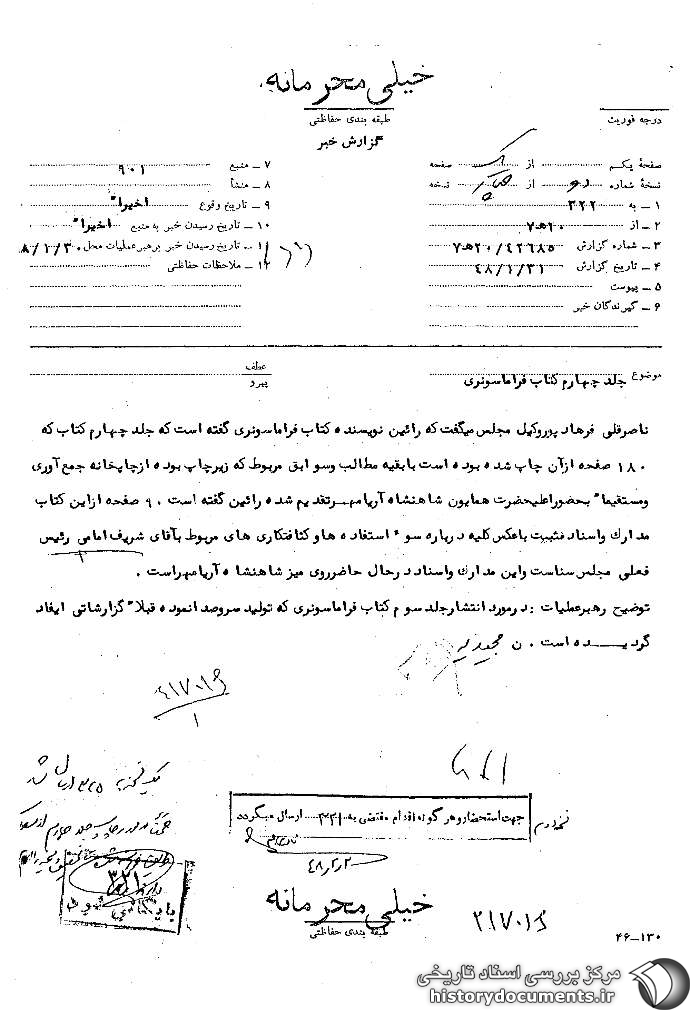 خیلی محرمانه
طبقه بندی حفاظتی
گزارش خبر
درجه فوریت
صفحه یکم از یک صفحه
نسخه شماره دو از چهار نسخه
۱ – به ۳۲۲
۲ – از ۲۰ه‍۷
۳ – شماره گزارش ۴۲۶۸۵/۲۰ه‍۷
۴ – تاریخ گزارش ۴۸/۱/۳۱
۵ – پیوست
۶ – گیرندگان خبر
۷ – منبع ۹۰۱
۸ – منشأ
۹ – تاریخ وقوع اخیراً
۱۰ – تاریخ رسیدن خبر به منبع اخیراً
۱۱ – تاریخ رسیدن خبر برهبر عملیات محل ۸/۱/۳۰
۱۲ – ملاحظات حفاظتی
موضوع جلد چهارم کتاب فراماسونری
عطف
پیرو
ناصرقلی فرهادپور وکیل مجلس میگفت که رائین نویسنده کتاب فراماسونری گفته است که جلد چهارم کتاب که
۱۸۰ صفحه ازآن چاپ شده بوده است بابقیه مطالب وسوابق مربوط که زیرچاپ بوده ازچاپخانه جمع آوری
ومستقیماً بحضوراعلیحضرت همایون شاهنشاه آریامهرتقدیم شده رائین گفته است ۹۰ صفحه ازاین کتاب
مدارک واسناد مثبت باعکس کلیه درباره سوء استفاده ها وکثافتکاری های مربوط بآقای شریف امامی رئیس
فعلی مجلس سناست واین مدارک واسناد درحال حاضر روی میز شاهنشاه آریامهراست .
توضیح رهبرعملیات : درمورد انتشارجلد سوم کتاب فراماسونری که تولید سروصدا نموده قبلاً گزارشاتی ایفاد
گردیده است . ن مجیدیه
۲۱۷۰۱۶
۱
جهت استحضار و هر گونه اقدام مقتضی به ۳۲۱ ارسال میگردد
۴۸/۲/۲
۳۲۱
بایگانی شود
خیلی محرمانه
طبقه بندی حفاظتی
۲۱۷۰۱۶
۴۶–۱۳۰
مرکز بررسی اسناد تاریخی
historydocuments.ir